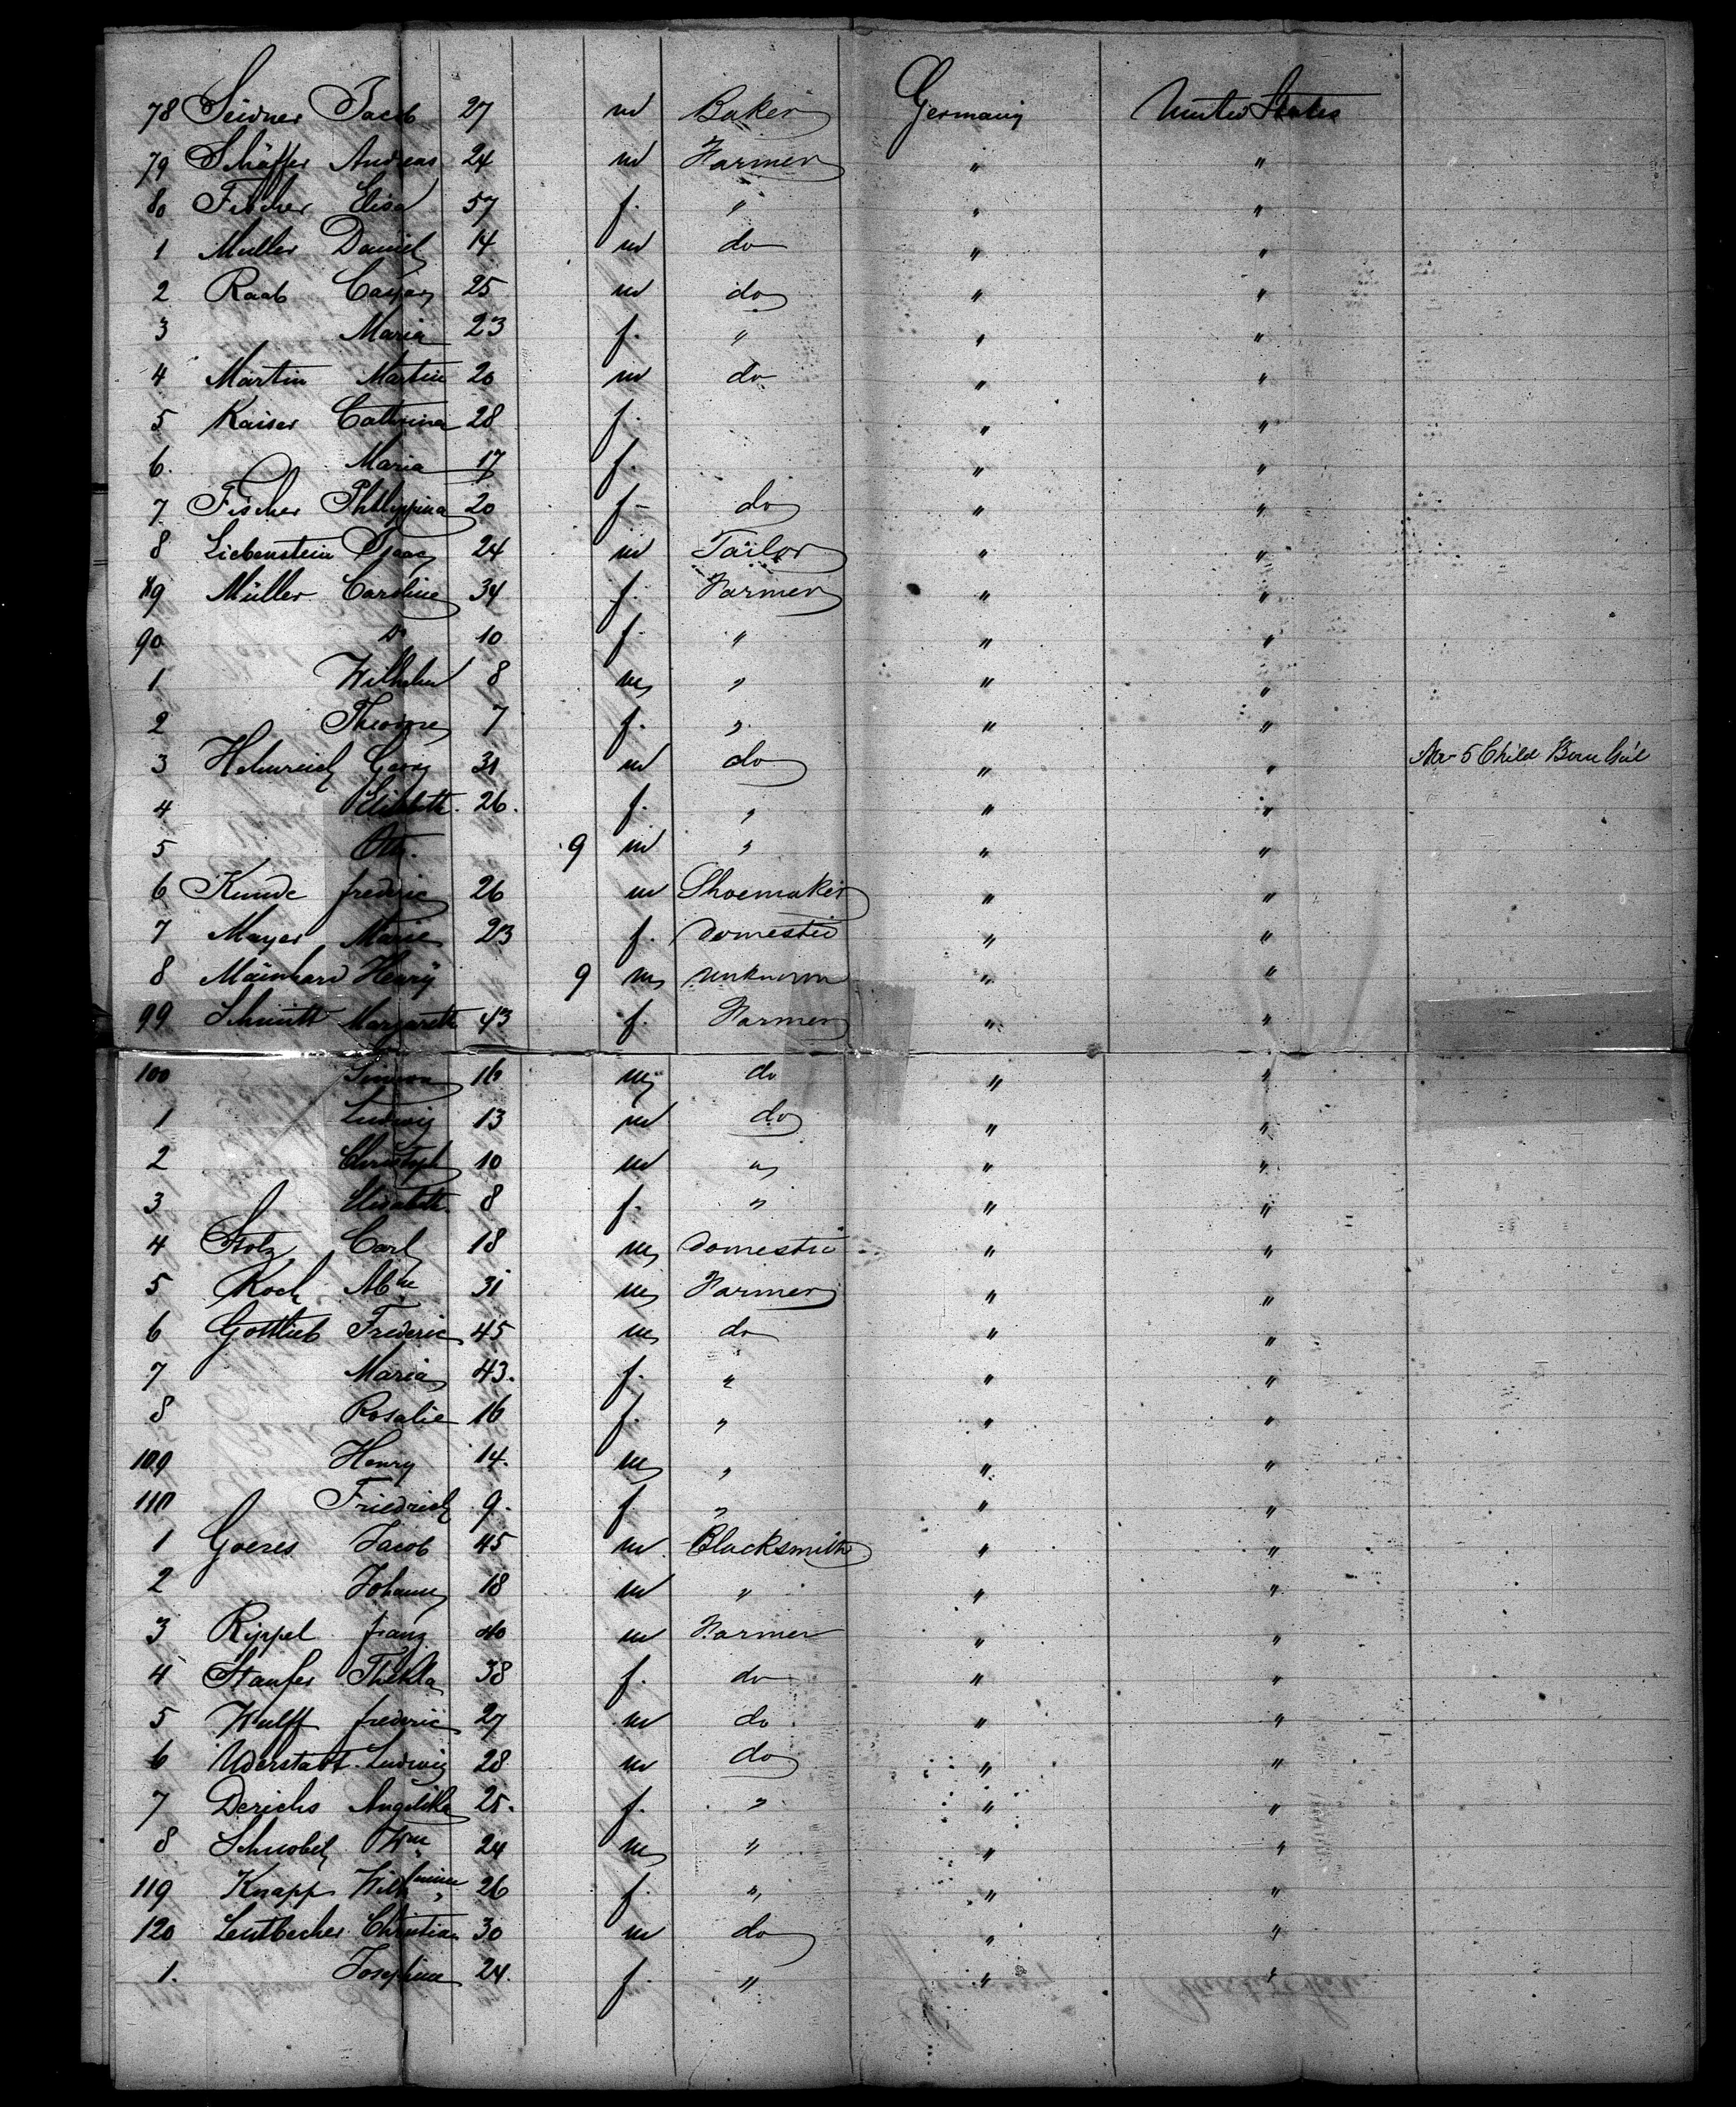 78 Seidner Jacob 27 m Baker Germany United States
79 Schäffer Andreas 24 m Farmer " "
80 Fischer Elisa 57 f. " " "
1 Muller Daniel 14 m do " "
2 Raab Caspar 25 m do " "
3 Maria 23 f. " " "
4 Martin Martin 20 m do " "
5 Kaiser Cathrina 28 f. " "
6. Maria 17 f. " "
7 Fischer Phllippina 20 f - do " "
8 Liebenstein Isaac 24 m Tailor " "
89 Müller Caroline 34 f. Farmer " "
90 Do 10 f. " " "
1 Wilhelm 8 m " " "
2 7 f. " " "
3 Heinreich Georg 31 m do " " No 5 Child
4 Elisabeth. 26. f. " " "
5 Otto. 9 m " " "
6 Kunde frederic 26 m Shoemaker " "
7 Mayer Marie 23 f. Domestic " "
8 Mainhard Henry 9 m unknown " "
99 Schmitt Margareth 43 f. Farmer " "
100 Simon 16 m do " "
1 Ludwig 13 m do " "
2 Christoph 10 m " " "
3 Elisabeth. 8 f. " " "
4 Stolz Carl 18 m Domestic " "
5 Koch 31 m Farmer " "
6 Gottlieb Frederic 45 m do " "
7 Maria 43. f. " " "
8 Rosalie 16 f. " " "
109 Henry 14. m " " "
110 Friedrich 9. f. " " "
1 Goeres Jacob 45 m. Blacksmith " "
2 Johann 18 m " " "
3 Rippel franz 40 m Farmer " "
4 Staufer Thekla 38 f. do " "
5 Wulff frederic 27 m do " "
6 Uderstadt Ludwig 28 m do " "
7 Derichs Angelika 25. f. " " "
8 Schnobel Wm 24 m " " "
119 Knapp Wilhmine 26 f. " " "
120 Leutbecher Christian 30 m do " "
1. Josephine 24. f. " " "